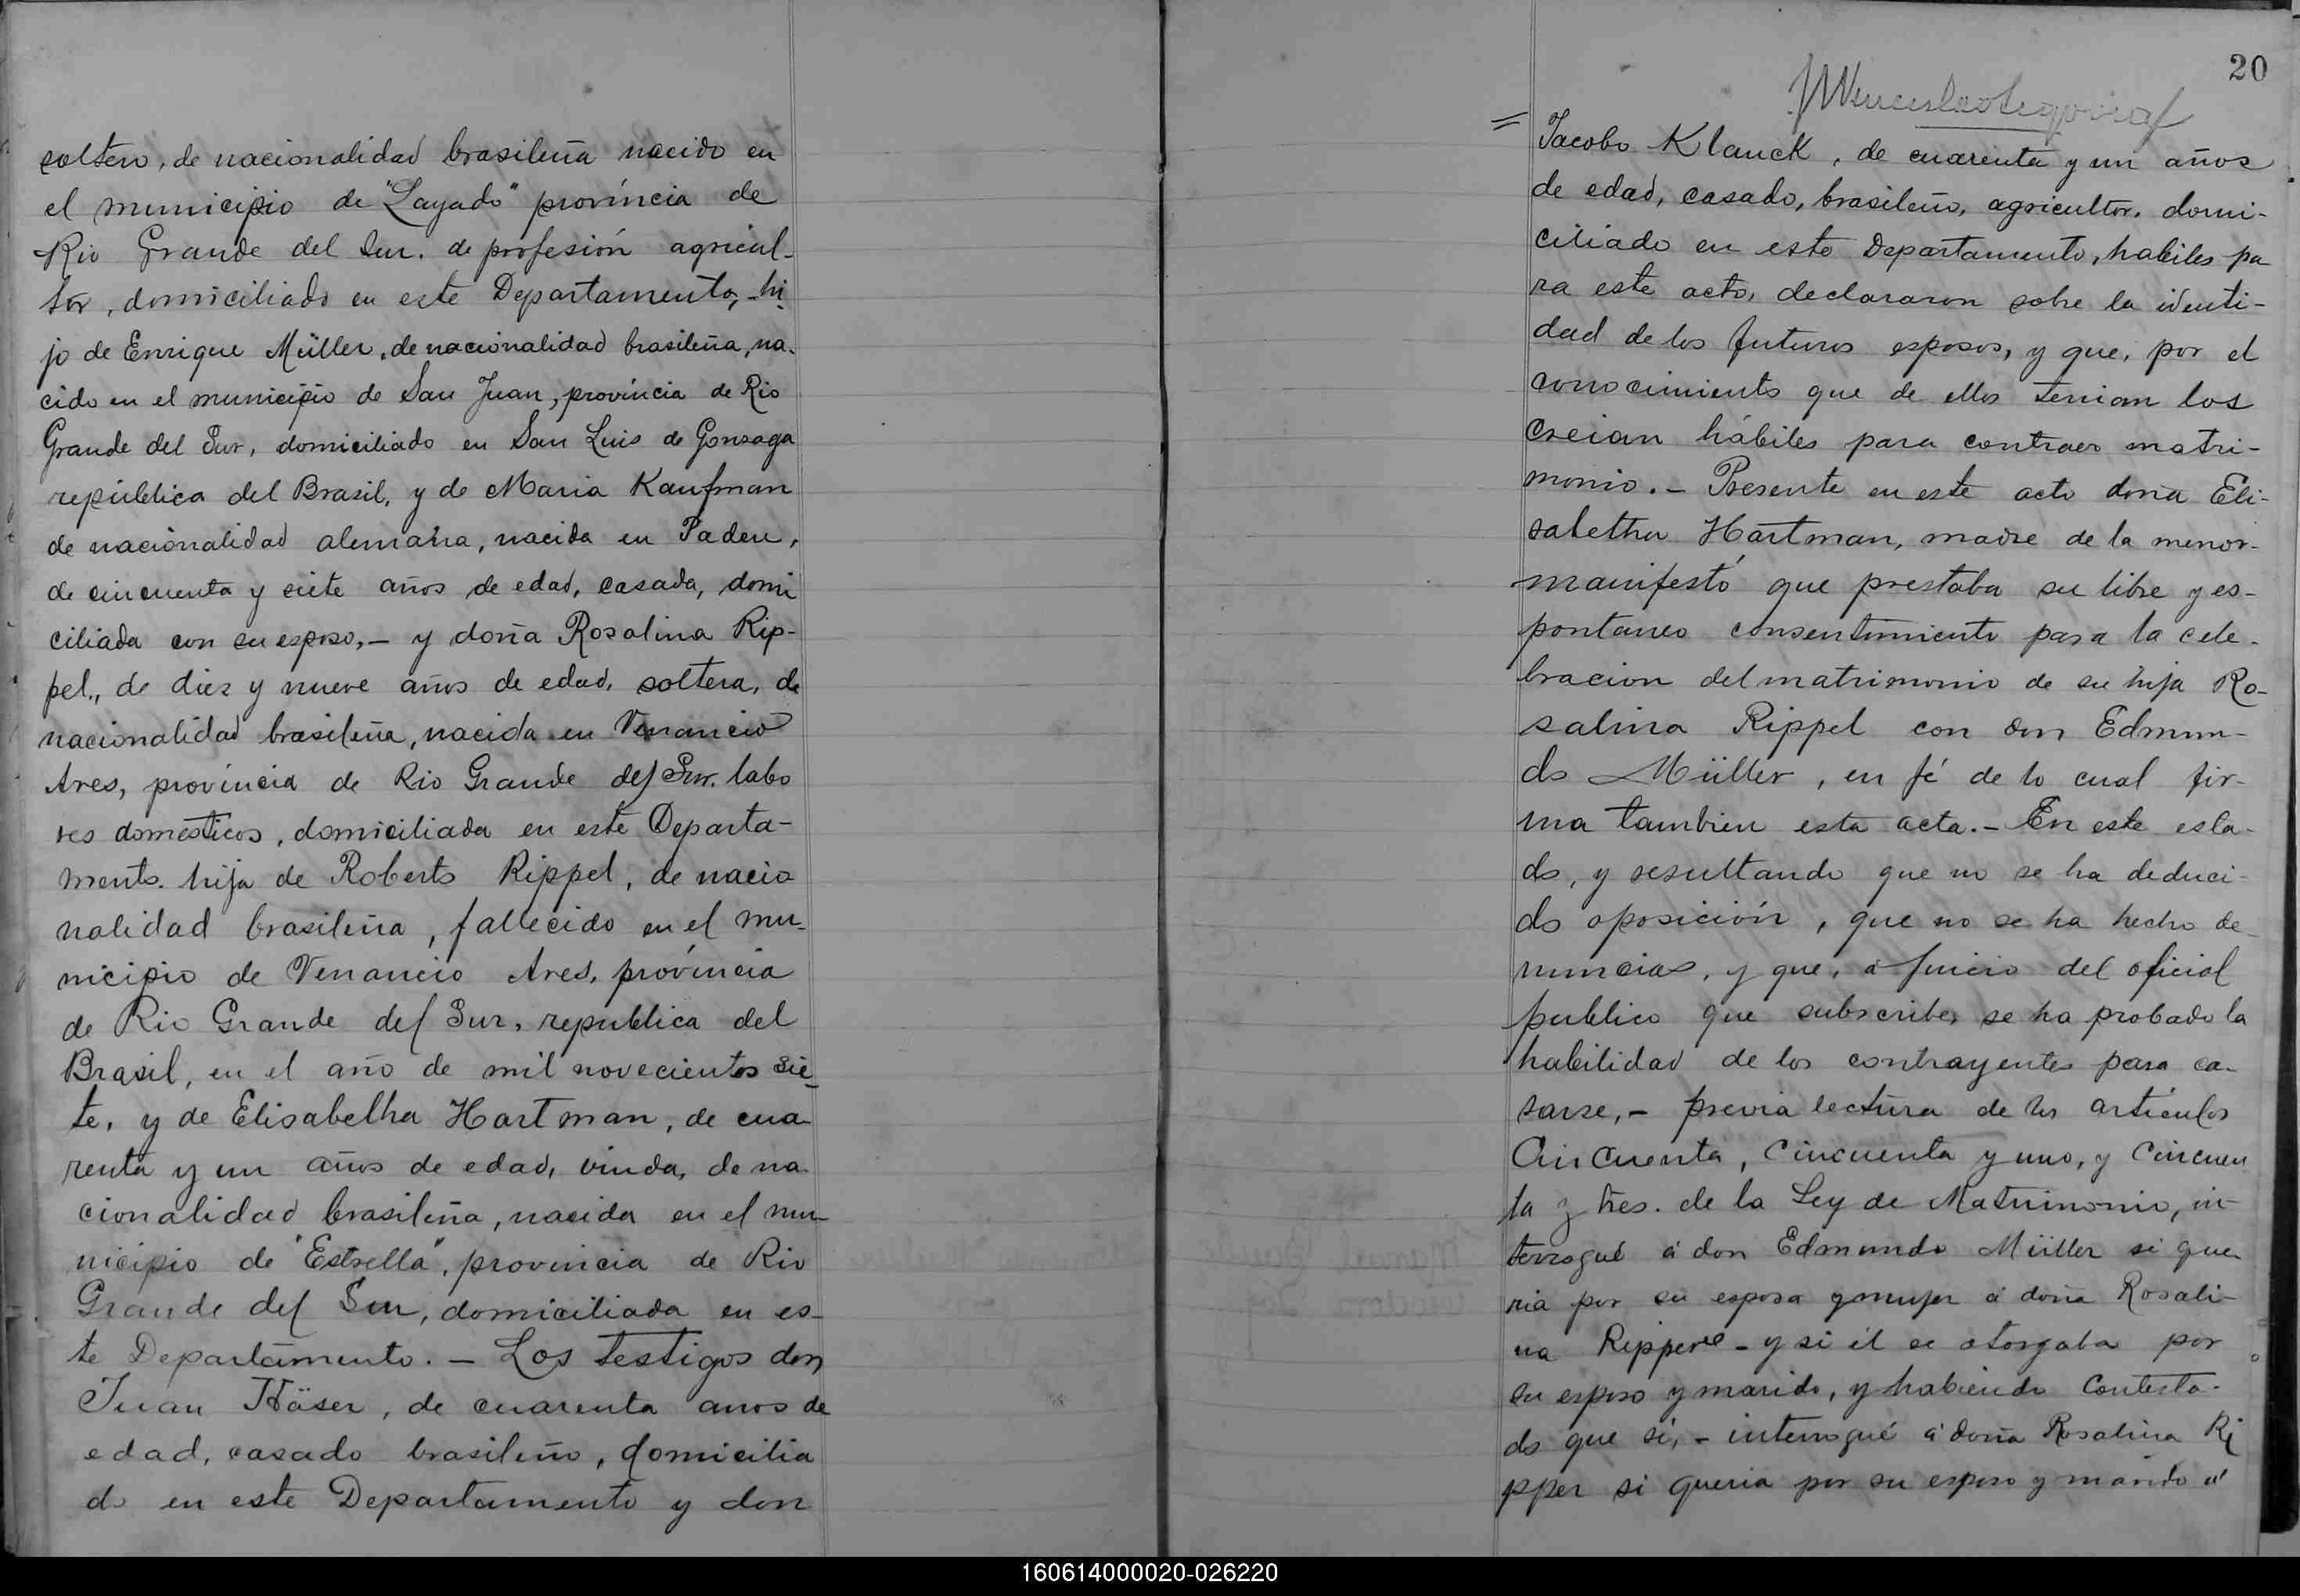 soltero, de nacionalidad brasileña nacido en
el municipio de "Layado" província de
Rio Grande del Sur. de profesión agricul-
tor, domiciliado en este Departamento, hi-
jo de Enrique Müller, de nacionalidad brasileña, na-
cido en el municipio de San Juan, província de Rio
Grande del Sur, domiciliado en San Luis de Gonzaga
república del Brasil, y de Maria Kaufman
de nacionalidad alemana, nacida en Paden,
de cincuenta y siete años de edad, casada, domi
ciliada con su esposo, - y doña Rosalina Rip-
pel., de diez y nueve años de edad, soltera, de
nacionalidad brasileña, nacida en Venancio
Ares, província de Rio Grande del Sur. labo
res domésticos, domiciliada en este Departa-
mento. hija de Roberto Rippel, de nacio
nalidad brasileña, fallecido en el mu-
nicipio de Venancio Ares, província
de Rio Grande del Sur, republica del
Brasil, en el año de mil novecientos sie-
te, y de Elisabetha Hartman, de cua-
renta y un años de edad, viuda, de na-
cionalidad brasileña, nacida en el mu-
nicipio de "Estrella", provincia de Rio
Grande del Sur, domiciliada en es-
te Departamento. - Los testigos don
Juan Häser, de cuarenta anos de
edad, casado brasileño, domicilia
do en este Departamento y don
20
= Jacobo Klauck, de cuarenta y un años
de edad, casado, brasileño, agricultor, domi-
ciliado en este Departamento, habiles pa
ra este acto, declararon sobre la identi-
dad de los futuros esposos, y que, por el
conocimiento que de ellos tenian los
creian hábiles para contraer matri-
monio. - Presente en este acto doña Eli-
sabetha Hartman, madre de la menor-
manifestó que prestaba su libre y es-
pontaneo consentimiento para la cele-
bracion del matrimonio de su hija Ro-
salina Rippel con don Edmun-
do Müller, en fé de lo cual fir-
ma tambien esta acta. - En este esta-
do, y resultando que no se ha deduci-
do oposición, que no se ha hecho de-
nuncias, y que, á juicio del oficial
publico que subscribe, se ha probado la
habilidad de los contrayentes para ca-
sarse, - previa lectura de los articulos
Cincuenta, Cincuenta y uno, y Cincuen
ta y tres. de la Ley de Matrimonio, in-
terrogué á don Edmundo Müller si que-
ria por su esposa y mujer á doña Rosali-
na Ripper - y si él se otorgaba por
su esposo y marido, y habiendo Contesta-
do que si, - interrogué á doña Rosalina Ri
pper si queria por su esposo y marido á
160614000020-026220